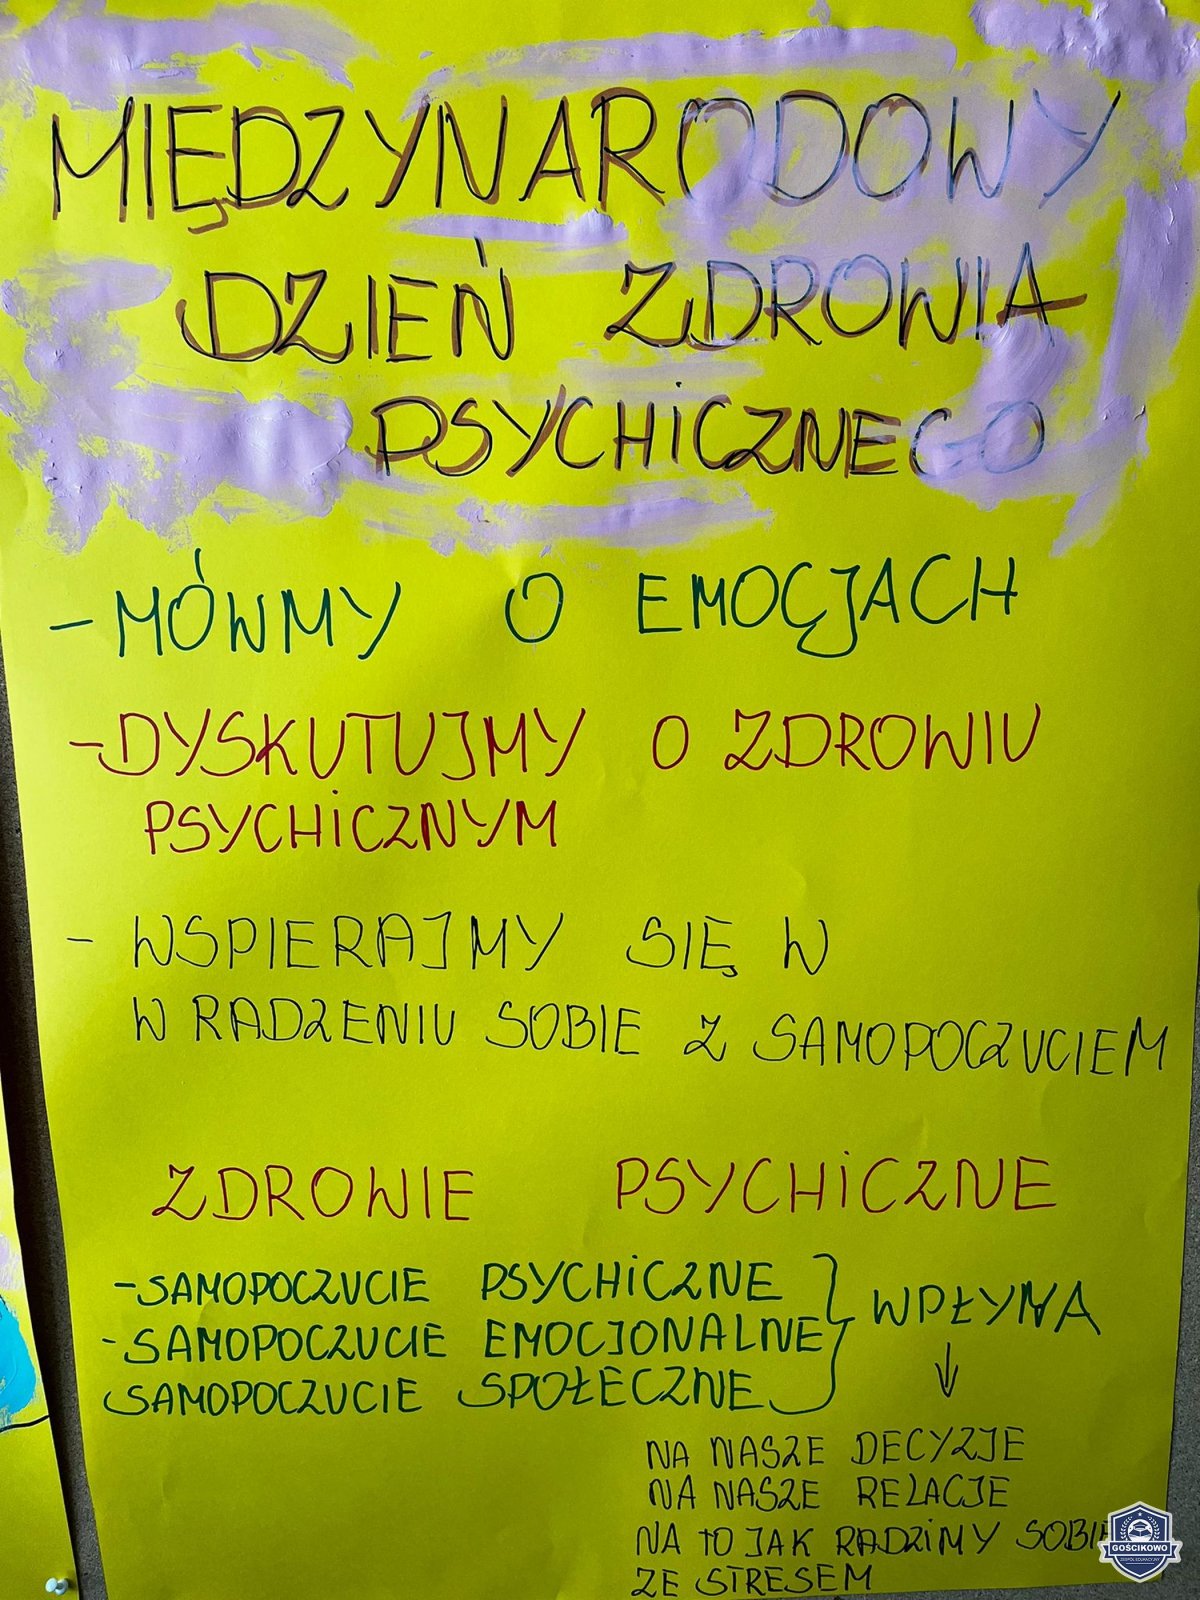 MIĘDZYNARODOWY
DZIEŃ ZDROWIA
PSYCHICZNEGO
- MÓWMY O EMOCJACH
- DYSKUTUJMY O ZDROWIU
PSYCHICZNYM
- WSPIERAJMY SIĘ W
W RADZENIU SOBIE Z SAMOPOCZUCIEM
ZDROWIE PSYCHICZNE
- SAMOPOCZUCIE PSYCHICZNE
- SAMOPOCZUCIE EMOCJONALNE
SAMOPOCZUCIE SPOŁECZNE
WPŁYWA
NA NASZE DECYZJE
NA NASZE RELACJE
NA TO JAK RADZIMY SOBIE
ZE STRESEM
GOŚCIKOWO
ZESPÓŁ EDUKACYJNY